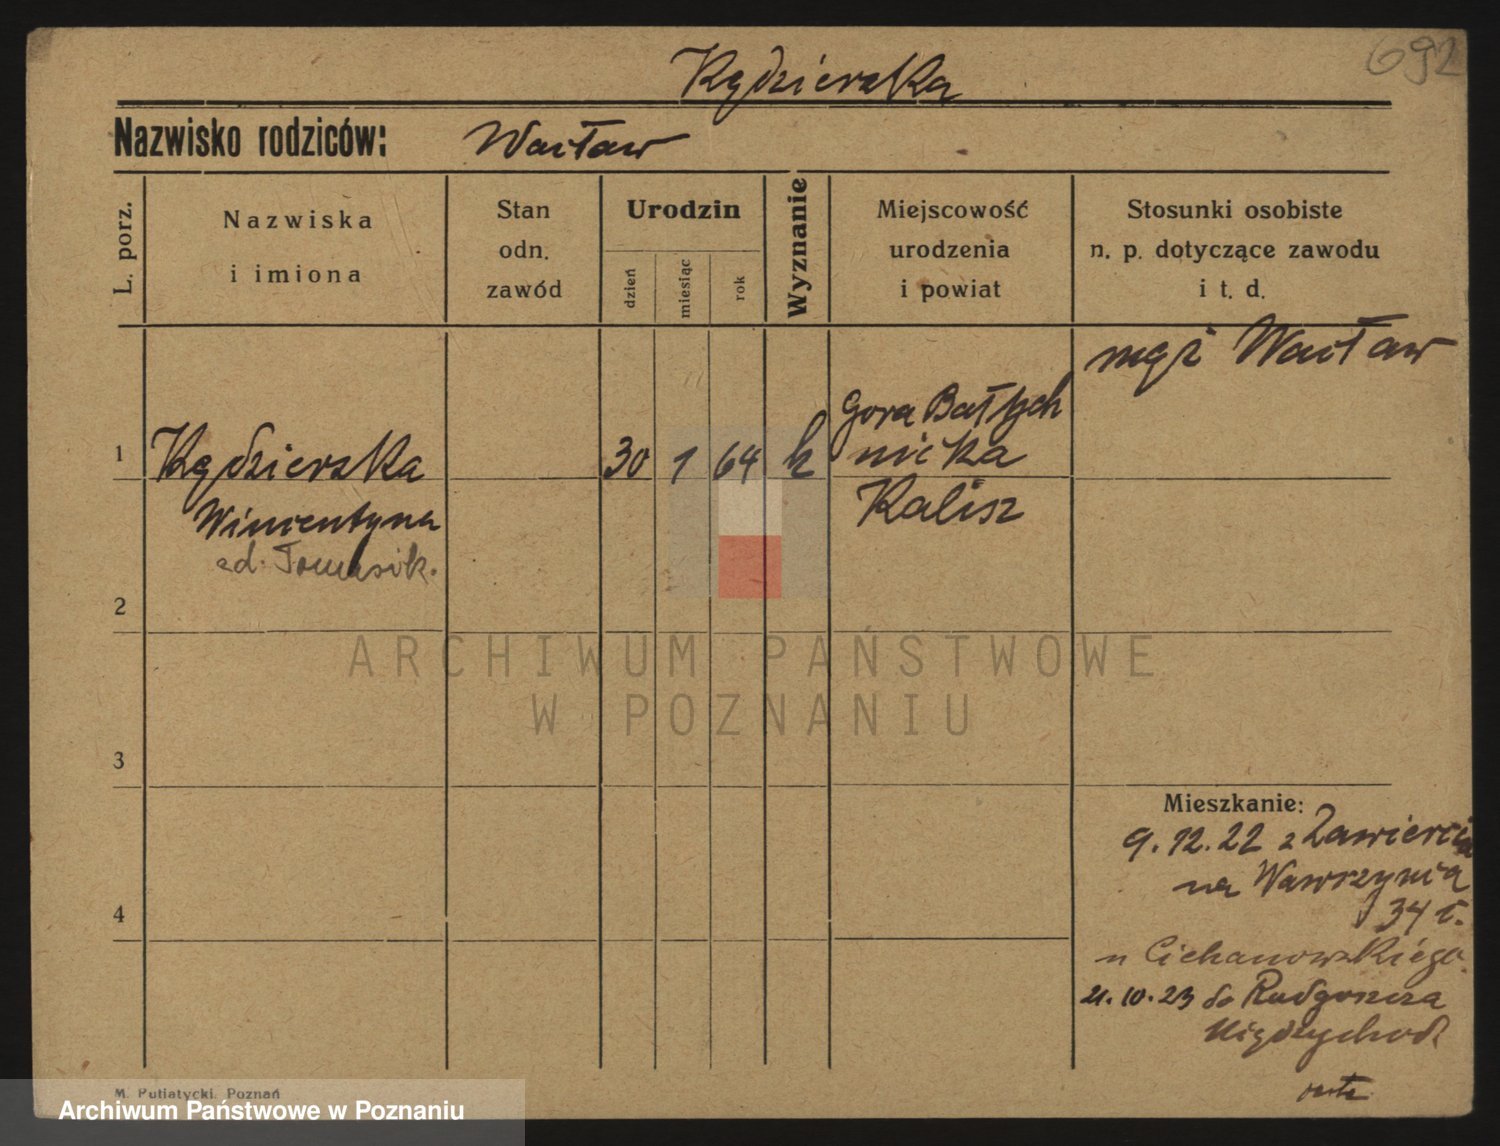 692
Kędzierska
Nazwisko rodziców: Wacław
L. porz.
Nazwiska
i imiona
Stan
odn.
zawód
Urodzin
dzień
miesiąc
rok
Wyznanie
Miejscowość
urodzenia
i powiat
Stosunki osobiste
n. p. dotyczące zawodu
i t. d.
mąż Wacław
1 Kędzierska 30 1 64 k
Wincentyna
Gora Bałdych
nicka
Kalisz
2
3
4
Mieszkanie:
9.12.22 z Zawiercia
na Wawrzynia
34 I.
u Cichanowskiego.
21.10.23 do Radgoszcza
Międzychod
M. Putiatycki. Poznań
ARCHIWUM PAŃSTWOWE
W POZNANIU
Archiwum Państwowe w Poznaniu